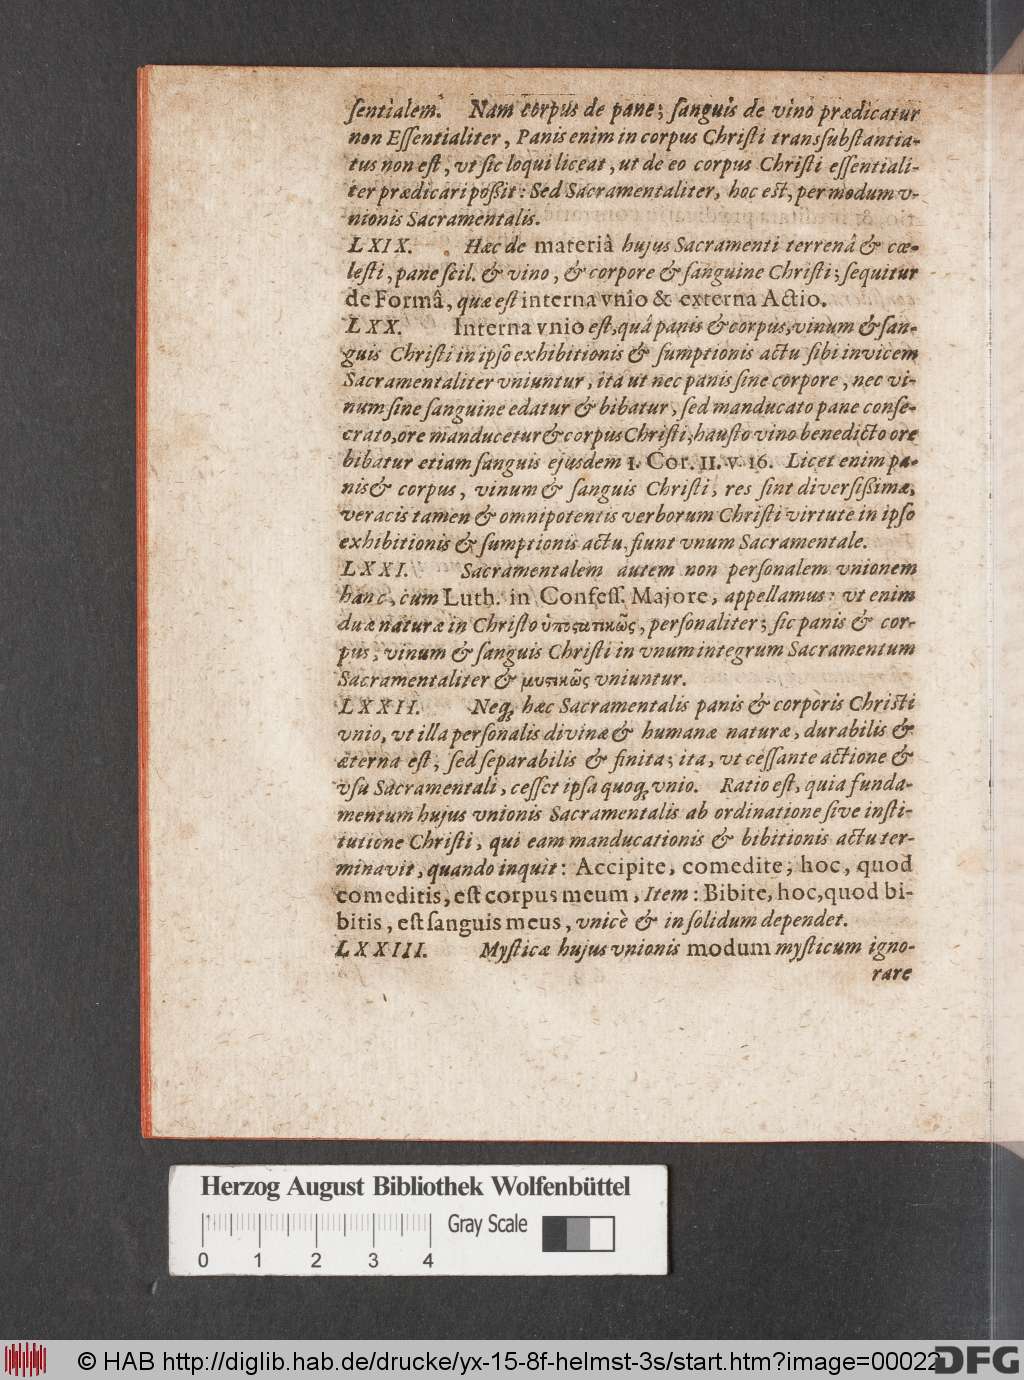 ſentialem. Nam corpus de pane; ſanguis de vino prædicatur
non Eſſentialiter, Panis enim in corpus Chriſti transſubſtantia-
tus non eſt, vt ſic loqui liceat, ut de eo corpus Chriſti eſſentiali-
ter prædicari poßit: Sed Sacramentaliter, hoc eſt, per modum v-
nionis Sacramentalis.
LXIX. Hæc de materiâ hujus Sacramenti terrenâ & cœ-
leſti, pane ſcil. & vino, & corpore & ſanguine Chriſti; ſequitur
de Formâ, quæ eſt interna vnio & externa Actio.
LXX. Interna vnio eſt, quâ panis & corpus, vinum & ſan-
guis Chriſti in ipſo exhibitionis & ſumptionis actu ſibi invicem
Sacramentaliter vniuntur, ita ut nec panis ſine corpore, nec vi-
num ſine ſanguine edatur & bibatur, ſed manducato pane conſe-
crato, ore manducetur & corpus Chriſti, hauſto vino benedicto ore
bibatur etiam ſanguis ejusdem I. Cor. II. v. 16. Licet enim pa-
nis & corpus, vinum & ſanguis Chriſti, res ſint diverſißimæ,
veracis tamen & omnipotentis verborum Chriſti virtute in ipſo
exhibitionis & ſumptionis actu, fiunt vnum Sacramentale.
LXXI. Sacramentalem autem non perſonalem vnionem
hanc, cum Luth. in Confeſſ. Majore, appellamus: vt enim
duæ naturæ in Chriſto ὑποστατικῶς, perſonaliter; ſic panis & cor-
pus, vinum & ſanguis Chriſti in vnum integrum Sacramentum
Sacramentaliter & μυστικῶς vniuntur.
LXXII. Neq; hæc Sacramentalis panis & corporis Chriſti
vnio, vt illa perſonalis divinæ & humanæ naturæ, durabilis &
æterna eſt, ſed ſeparabilis & finita; ita, vt ceſſante actione &
vſu Sacramentali, ceſſet ipſa quoq; vnio. Ratio eſt, quia funda-
mentum hujus vnionis Sacramentalis ab ordinatione ſive inſti-
tutione Chriſti, qui eam manducationis & bibitionis actu ter-
minavit, quando inquit: Accipite, comedite; hoc, quod
comeditis, eſt corpus meum, Item: Bibite, hoc, quod bi-
bitis, eſt ſanguis meus, vnicè & in ſolidum dependet.
LXXIII. Myſticæ hujus vnionis modum myſticum igno-
rare
Herzog August Bibliothek Wolfenbüttel
Gray Scale
0 1 2 3 4
© HAB http://diglib.hab.de/drucke/yx-15-8f-helmst-3s/start.htm?image=00022
DFG